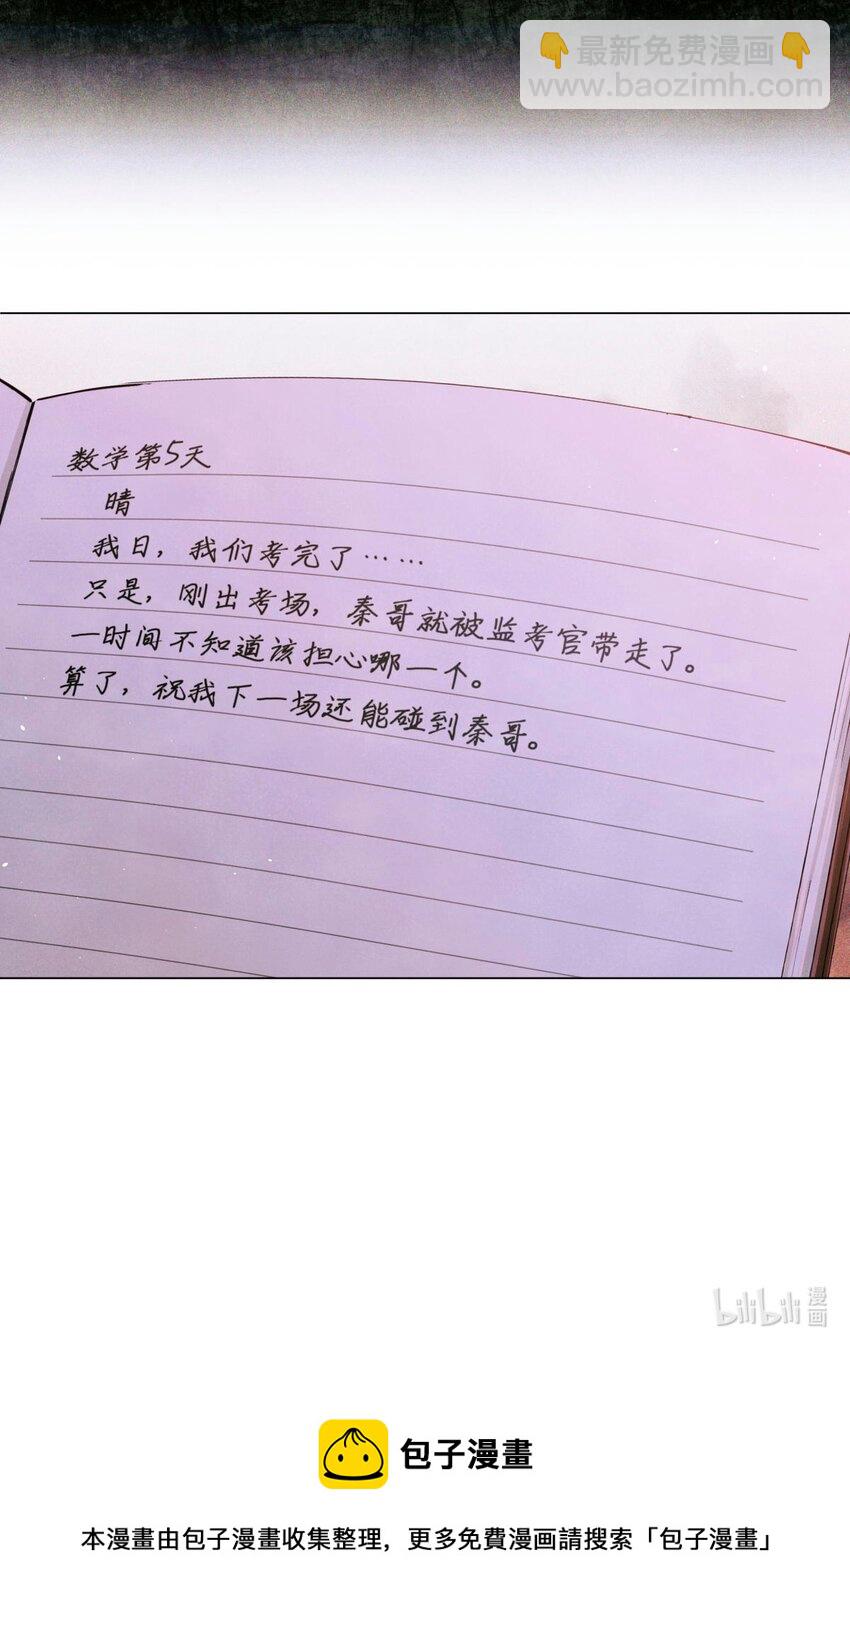 👇最新免费漫画👇
www.baozimh.com
数学第5天
晴
我日，我们考完了……
只是，刚出考场，秦哥就被监考官带走了。
一时间不知道该担心哪一个。
算了，祝我下一场还能碰到秦哥。
bilibili漫画
包子漫畫
本漫畫由包子漫畫收集整理，更多免費漫画請搜索「包子漫畫」